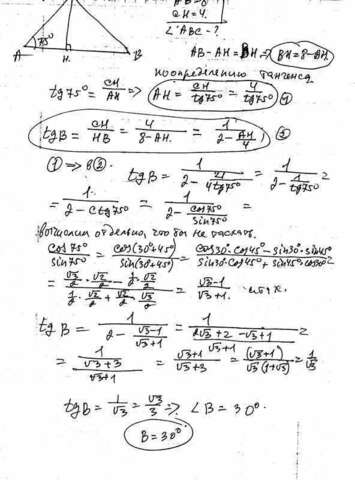 AB=8
CH=4.
∠ABC-?
A 75° H. B
AB-AH=BH => BH=8-AH
по определению тангенса
tg75° = CH/AH => AH = CH/tg75° = 4/tg75° ①
tgB = CH/HB = 4/8-AH. = 1/2-AH/4 ②
① => в ②. tgB = 1/2-4/4tg75° = 1/2-1/tg75° =
= 1/2-ctg75° = 1/2-cos75°/sin75° =
вычислим отдельно, что бы не
cos75°/sin75° = cos(30°+45°)/sin(30°+45°) = cos30°·cos45°-sin30°·sin45°/sin30°·cos45°+sin45°·cos30° =
= √3/2·√2/2-1/2·√2/2 / 1/2·√2/2+√2/2·√3/2 = √3-1/√3+1.
tgB = 1/2-√3-1/√3+1 = 1/2√3+2-√3+1/√3+1 =
= 1/√3+3/√3+1 = √3+1/√3+3 = (√3+1)/√3(1+√3) = 1/√3
tgB = 1/√3 = √3/3 => ∠B=30°.
B=30°